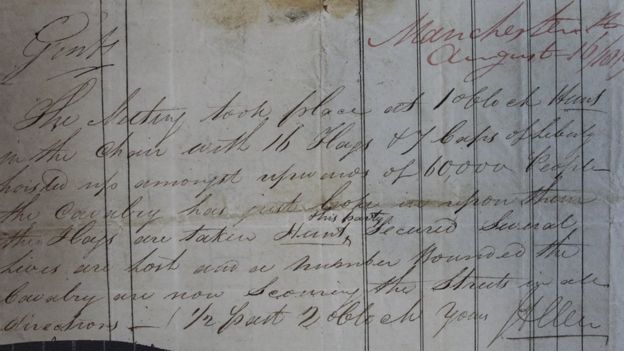 Gents
Manchester
August 16/1819
The Meeting took place at 1 oblock Hunt
in the Chair with 16 Flags & 7 Caps of Liberty
hoisted up amongst upwards of 60000 People
the Cavalry has just broke in upon them
the Flags are taken Hunt
this party
Secured Several
Lives are lost and a number Wounded the
Cavalry are now Scouring the Streets in all
directions — 1/2 past 2 oblock Yours J Allen